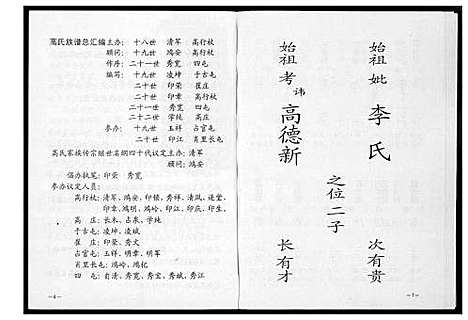 高氏族谱总汇编主办：十八世 清军 高行杖
顾问：十九世 鸿安 高行杖
作序：二十一世 秀宽 四屯
编写：十九世 凌坤 于古屯
二十世 印荣 崔庄
二十世 印章 高行杖
二十一世 秀宽 四屯
二十二世 学纯 高庄
参办：十九世 玉祥 占官屯
二十世 印江 肖里长屯
高氏家族传宗继世名纲四十代议定主办：清军
顾问：鸿安
倡办执笔：印荣 秀宽
参办议定人员：
高行杖：清军、鸿安、印镇、秀祥、清凤、连堂、
印章、鸿明、鸿岭、印江、印庆、印生、
高庄：长木、占泉、学纯
于古屯：凌坤、凌斌
崔庄：印荣、秀文
占官屯：玉祥、明章、明军
肖里长屯：鸿岭、鸿杙
四屯：自清、秀宽、秀宝、秀斌、秀江
—6—
始祖妣 李氏 次有贵
之位二子
始祖考 讳 高德新 长有才
—7—